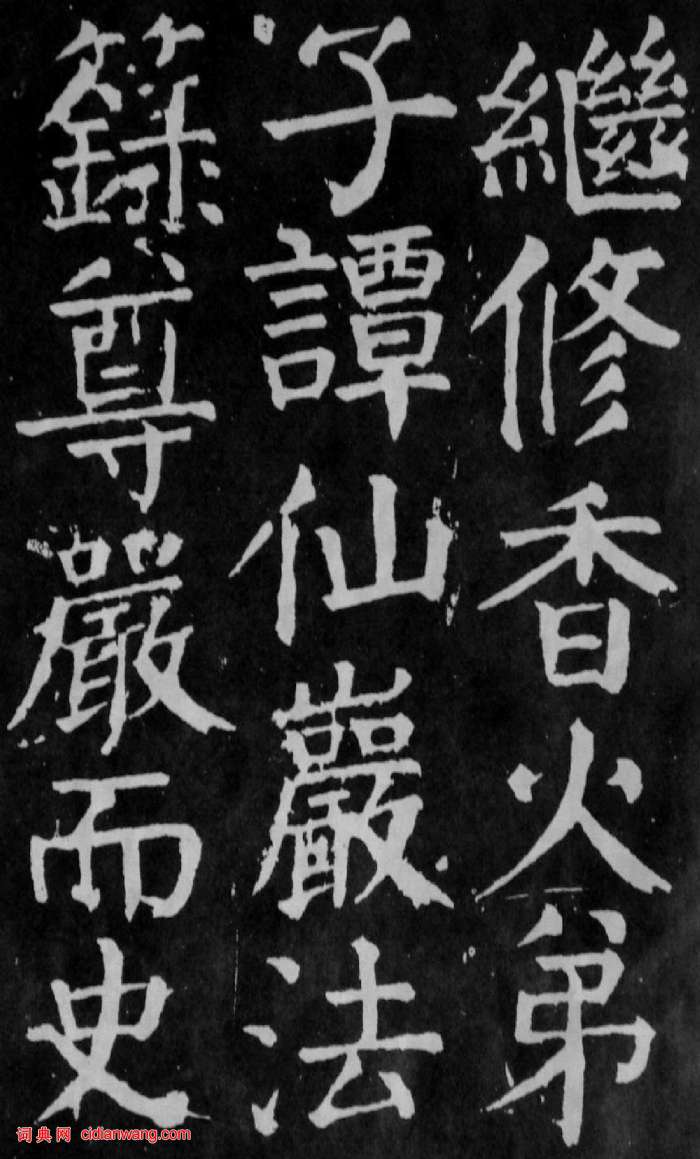 繼修香火弟
子譚仙巖法
籙尊嚴而史
词典网 cidianwang.com